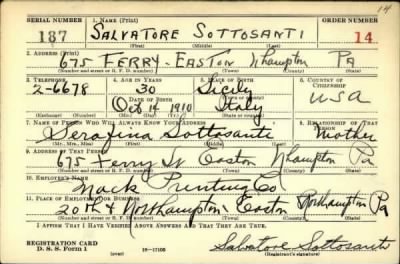 14
SERIAL NUMBER 1. NAME (Print) ORDER NUMBER
187 SALVATORE SOTTOSANTI 14
(First) (Middle) (Last)
2. ADDRESS (Print)
675 FERRY - EASTON Nhampton Pa
(Number and street or R. F. D. number) (Town) (County) (State)
3. TELEPHONE 4. AGE IN YEARS 5. PLACE OF BIRTH 6. COUNTRY OF CITIZENSHIP
2-6678 30 Sicily
DATE OF BIRTH (Town or county)
Oct 14 1910 Italy USA
(Mo.) (Day) (Yr.) (State or country)
7. NAME OF PERSON WHO WILL ALWAYS KNOW YOUR ADDRESS 8. RELATIONSHIP OF THAT PERSON
Serafina Sottosanti Mother
(Mr., Mrs., Miss) (First) (Middle) (Last)
9. ADDRESS OF THAT PERSON
675 Ferry St Easton Nhampton Pa
(Number and street or R. F. D. number) (Town) (County) (State)
10. EMPLOYER'S NAME
Mack Printing Co
11. PLACE OF EMPLOYMENT OR BUSINESS
20th & Northampton Easton Northampton Pa
(Number and street or R. F. D. number) (Town) (County) (State)
I AFFIRM THAT I HAVE VERIFIED ABOVE ANSWERS AND THAT THEY ARE TRUE.
REGISTRATION CARD
D. S. S. Form 1 (over) 16-17105 Salvatore Sottosanti
(Registrant's signature)